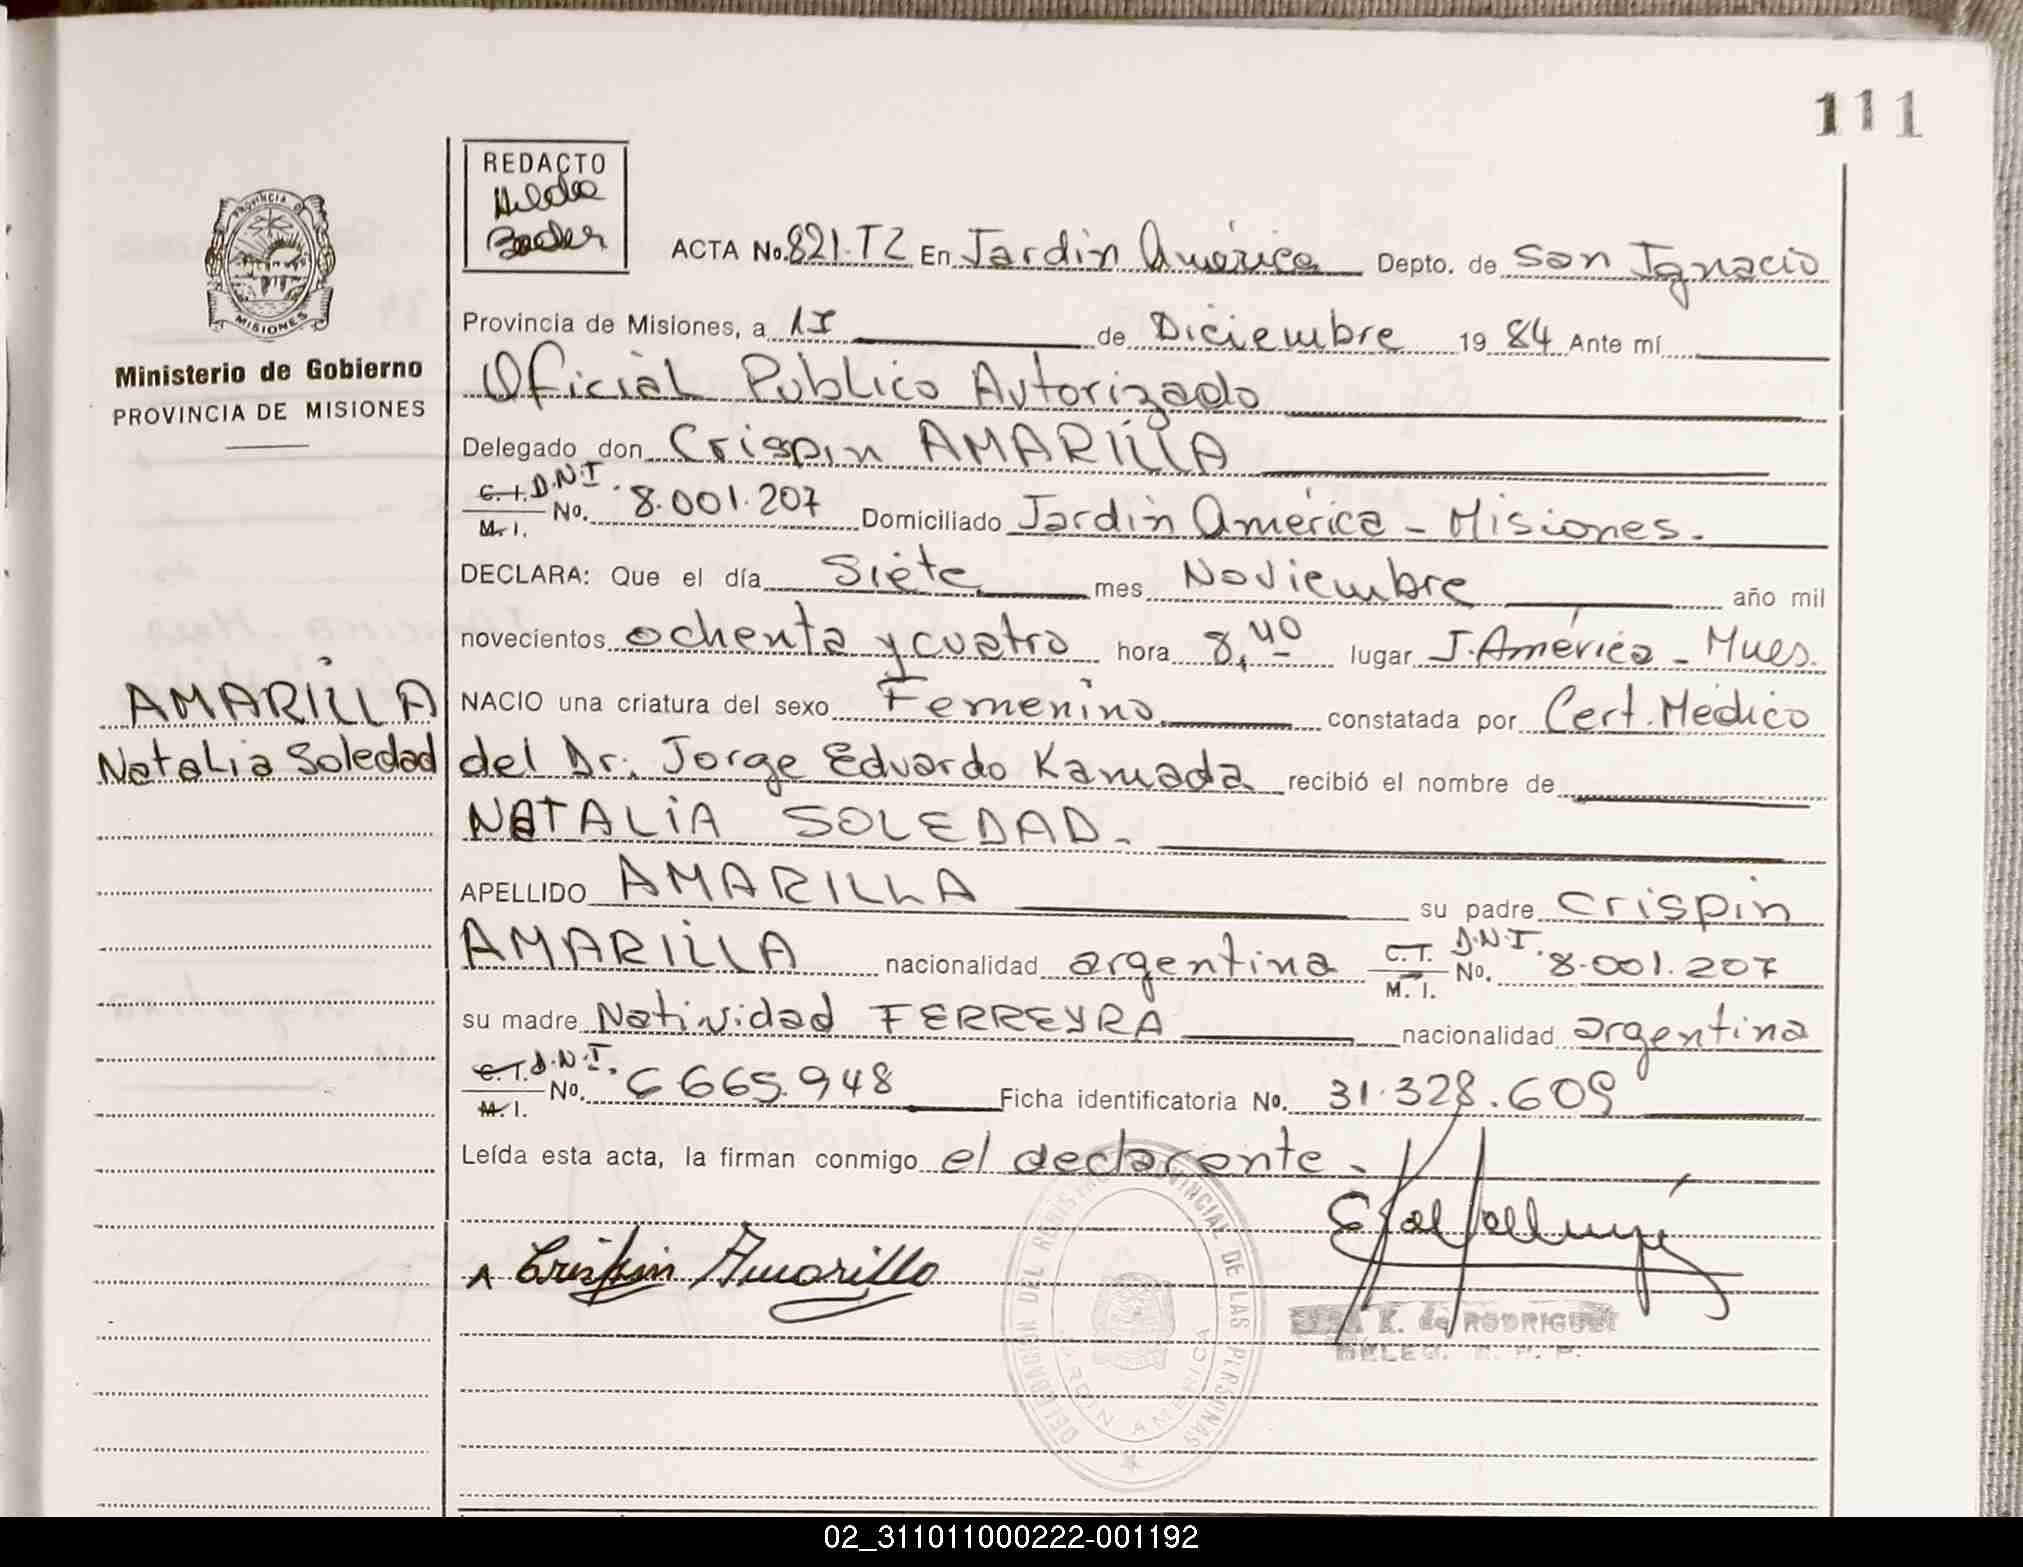 111
REDACTO
Hilda
Bader
PROVINCIA DE
MISIONES
Ministerio de Gobierno
PROVINCIA DE MISIONES
ACTA No. 821.T2 En Jardin América Depto. de San Ignacio
Provincia de Misiones, a 1I de Diciembre 1984 Ante mí
Oficial Publico Autorizado
Delegado don Crispin AMARILLA
C.I. D.N.I. M.I. No. 8.001.207 Domiciliado Jardin América - Misiones.
DECLARA: Que el día Siete mes Noviembre año mil
novecientos ochenta y cuatro hora 8,40 lugar J. América - Mnes.
AMARILLA
Natalia Soledad
NACIO una criatura del sexo Femenino constatada por Cert. Médico
del Dr. Jorge Eduardo Kamada recibió el nombre de
NATALIA SOLEDAD.
APELLIDO AMARILLA su padre Crispin
AMARILLA nacionalidad argentina C.T. D.N.I. M.I. No. 8.001.207
su madre Natividad FERREYRA nacionalidad argentina
C.T. D.N.I. M.I. No. 6665.948 Ficha identificatoria No. 31.328.609
Leída esta acta, la firman conmigo el declarante.
Crispin Amarilla
K. de RODRIGUEZ
DELEG. R. P. P.
DELEGACION DEL REGISTRO PROVINCIAL DE LAS PERSONAS
JARDIN AMERICA
02_311011000222-001192